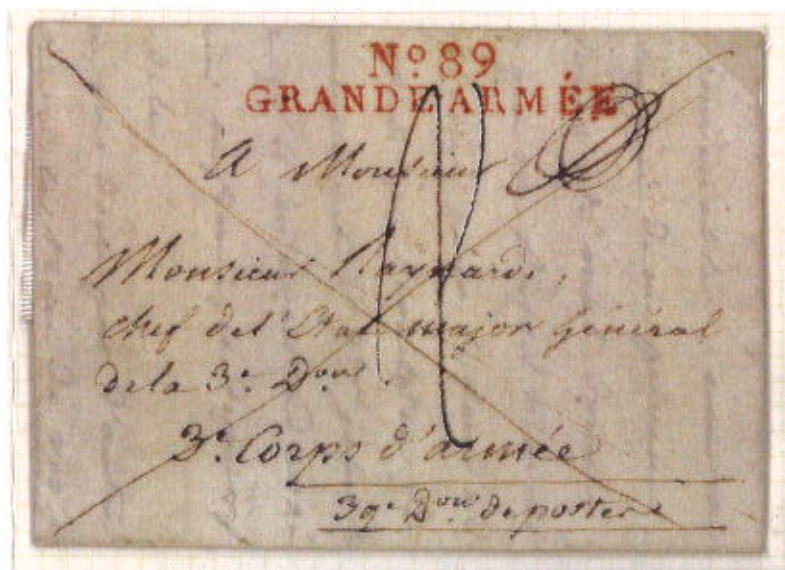 Nº 89
GRANDE ARMÉE
A Monsieur
Monsieur
chef de l'Etat major général
de la 3e Don
3e Corps d'armée
Don de postes